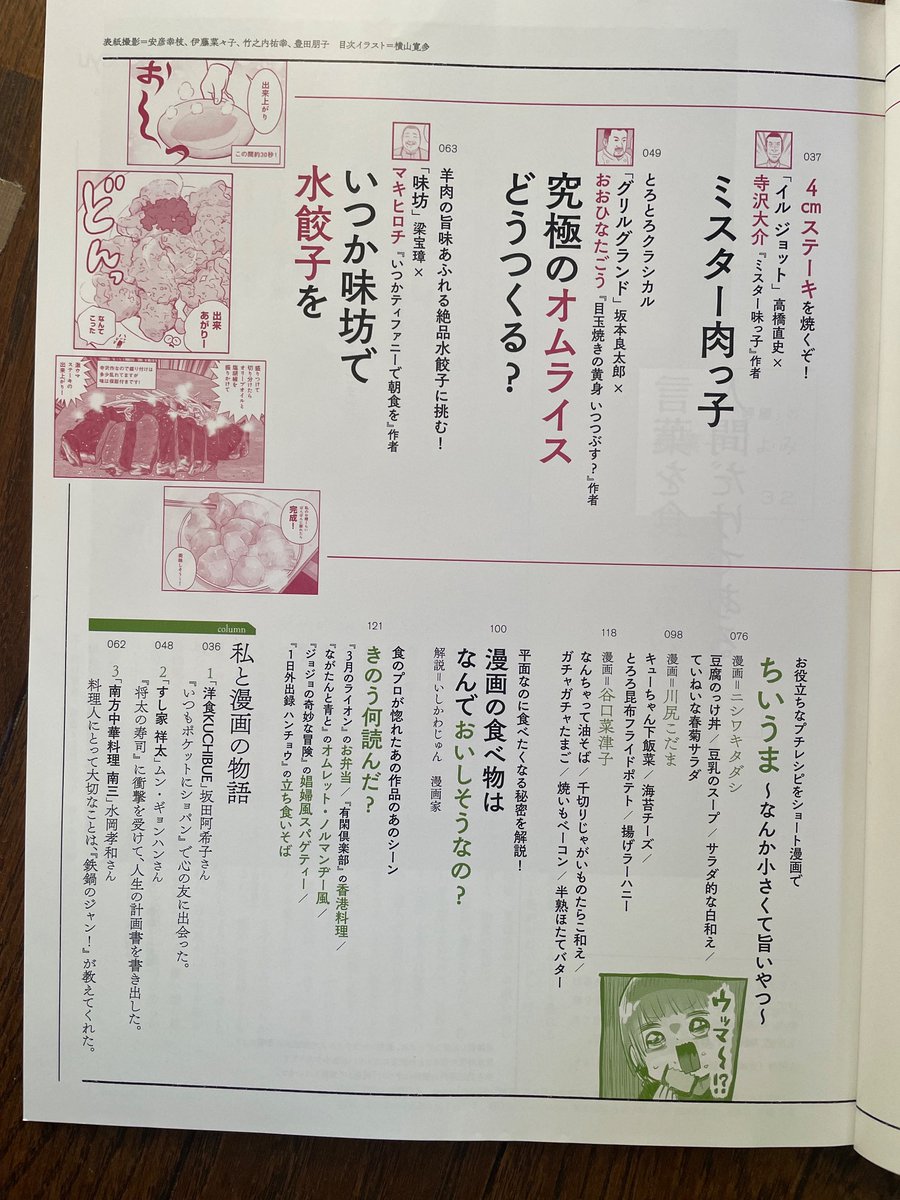 表紙撮影＝安彦幸枝、伊藤菜々子、竹之内祐幸、豊田朋子　目次イラスト＝横山寛多
037
4cmステーキを焼くぞ！
「イル ジョット」高橋直史×
寺沢大介『ミスター味っ子』作者
ミスター肉っ子
049
とろとろクラシカル
「グリルグランド」坂本良太郎×
おおひなたごう『目玉焼きの黄身 いつつぶす？』作者
究極のオムライス
どうつくる？
063
羊肉の旨味あふれる絶品水餃子に挑む！
「味坊」梁宝璋×
マキヒロチ『いつかティファニーで朝食を』作者
いつか味坊で
水餃子を
お〜っ
出来上がり
この間約30秒！
どどんっ
出来
あがりー
なんて
こった
盛りつけて
切り分けたら
オリーブオイルと
塩胡椒を
振りかけて
寺沢作なので盛り付けは
多少乱れてますが
味は保証付きです！
激ウマ
ステーキの
出来上がり！
完成！
076
お役立ちなプチレシピをショート漫画で
ちいうま 〜なんか小さくて旨いやつ〜
漫画＝ニシワキタダシ
豆腐のっけ丼／豆乳のスープ／サラダ的な白和え／
ていねいな春菊サラダ
098
漫画＝川尻こだま
キューちゃん下飯菜／海苔チーズ／
とろろ昆布フライドポテト／揚げラーハニー
118
漫画＝谷口菜津子
なんちゃって油そば／千切りじゃがいものたらこ和え／
ガチャガチャたまご／焼いもベーコン／半熟ほたてバター
ウッマ〜!?
100
平面なのに食べたくなる秘密を解説！
漫画の食べ物は
なんでおいしそうなの？
解説＝いしかわじゅん　漫画家
121
食のプロが惚れたあの作品のあのシーン
きのう何読んだ？
『3月のライオン』のお弁当／『有閑倶楽部』の香港料理／
『ながたんと青と』のオムレット・ノルマンヂー風／
『ジョジョの奇妙な冒険』の娼婦風スパゲティー／
『1日外出録 ハンチョウ』の立ち食いそば
column
私と漫画の物語
036
1「洋食KUCHIBUE」坂田阿希子さん
『いつもポケットにショパン』で心の友に出会った。
048
2「すし家 祥太」ムン・ギョンハンさん
『将太の寿司』に衝撃を受けて、人生の計画書を書き出した。
062
3「南方中華料理 南三」水岡孝和さん
料理人にとって大切なことは、『鉄鍋のジャン！』が教えてくれた。